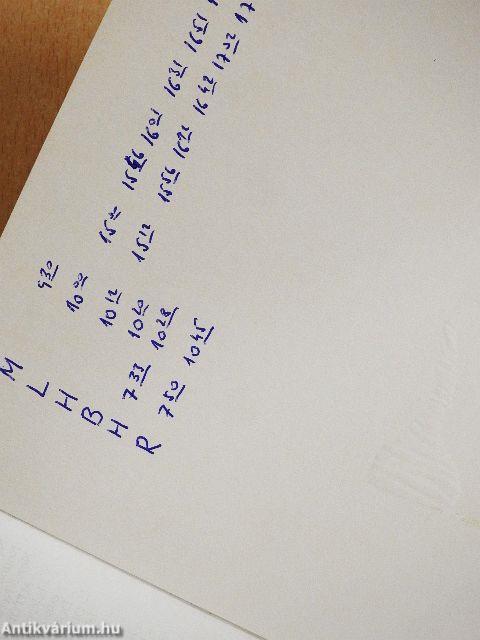 M 9 30
L 10 00 15 00 15 46 16 01 16 31 16 51
H 10 12 15 12 15 56 16 42 17 02 17
B 10 20
H 7 33 10 28
R 7 50 10 45
Antikvárium.hu